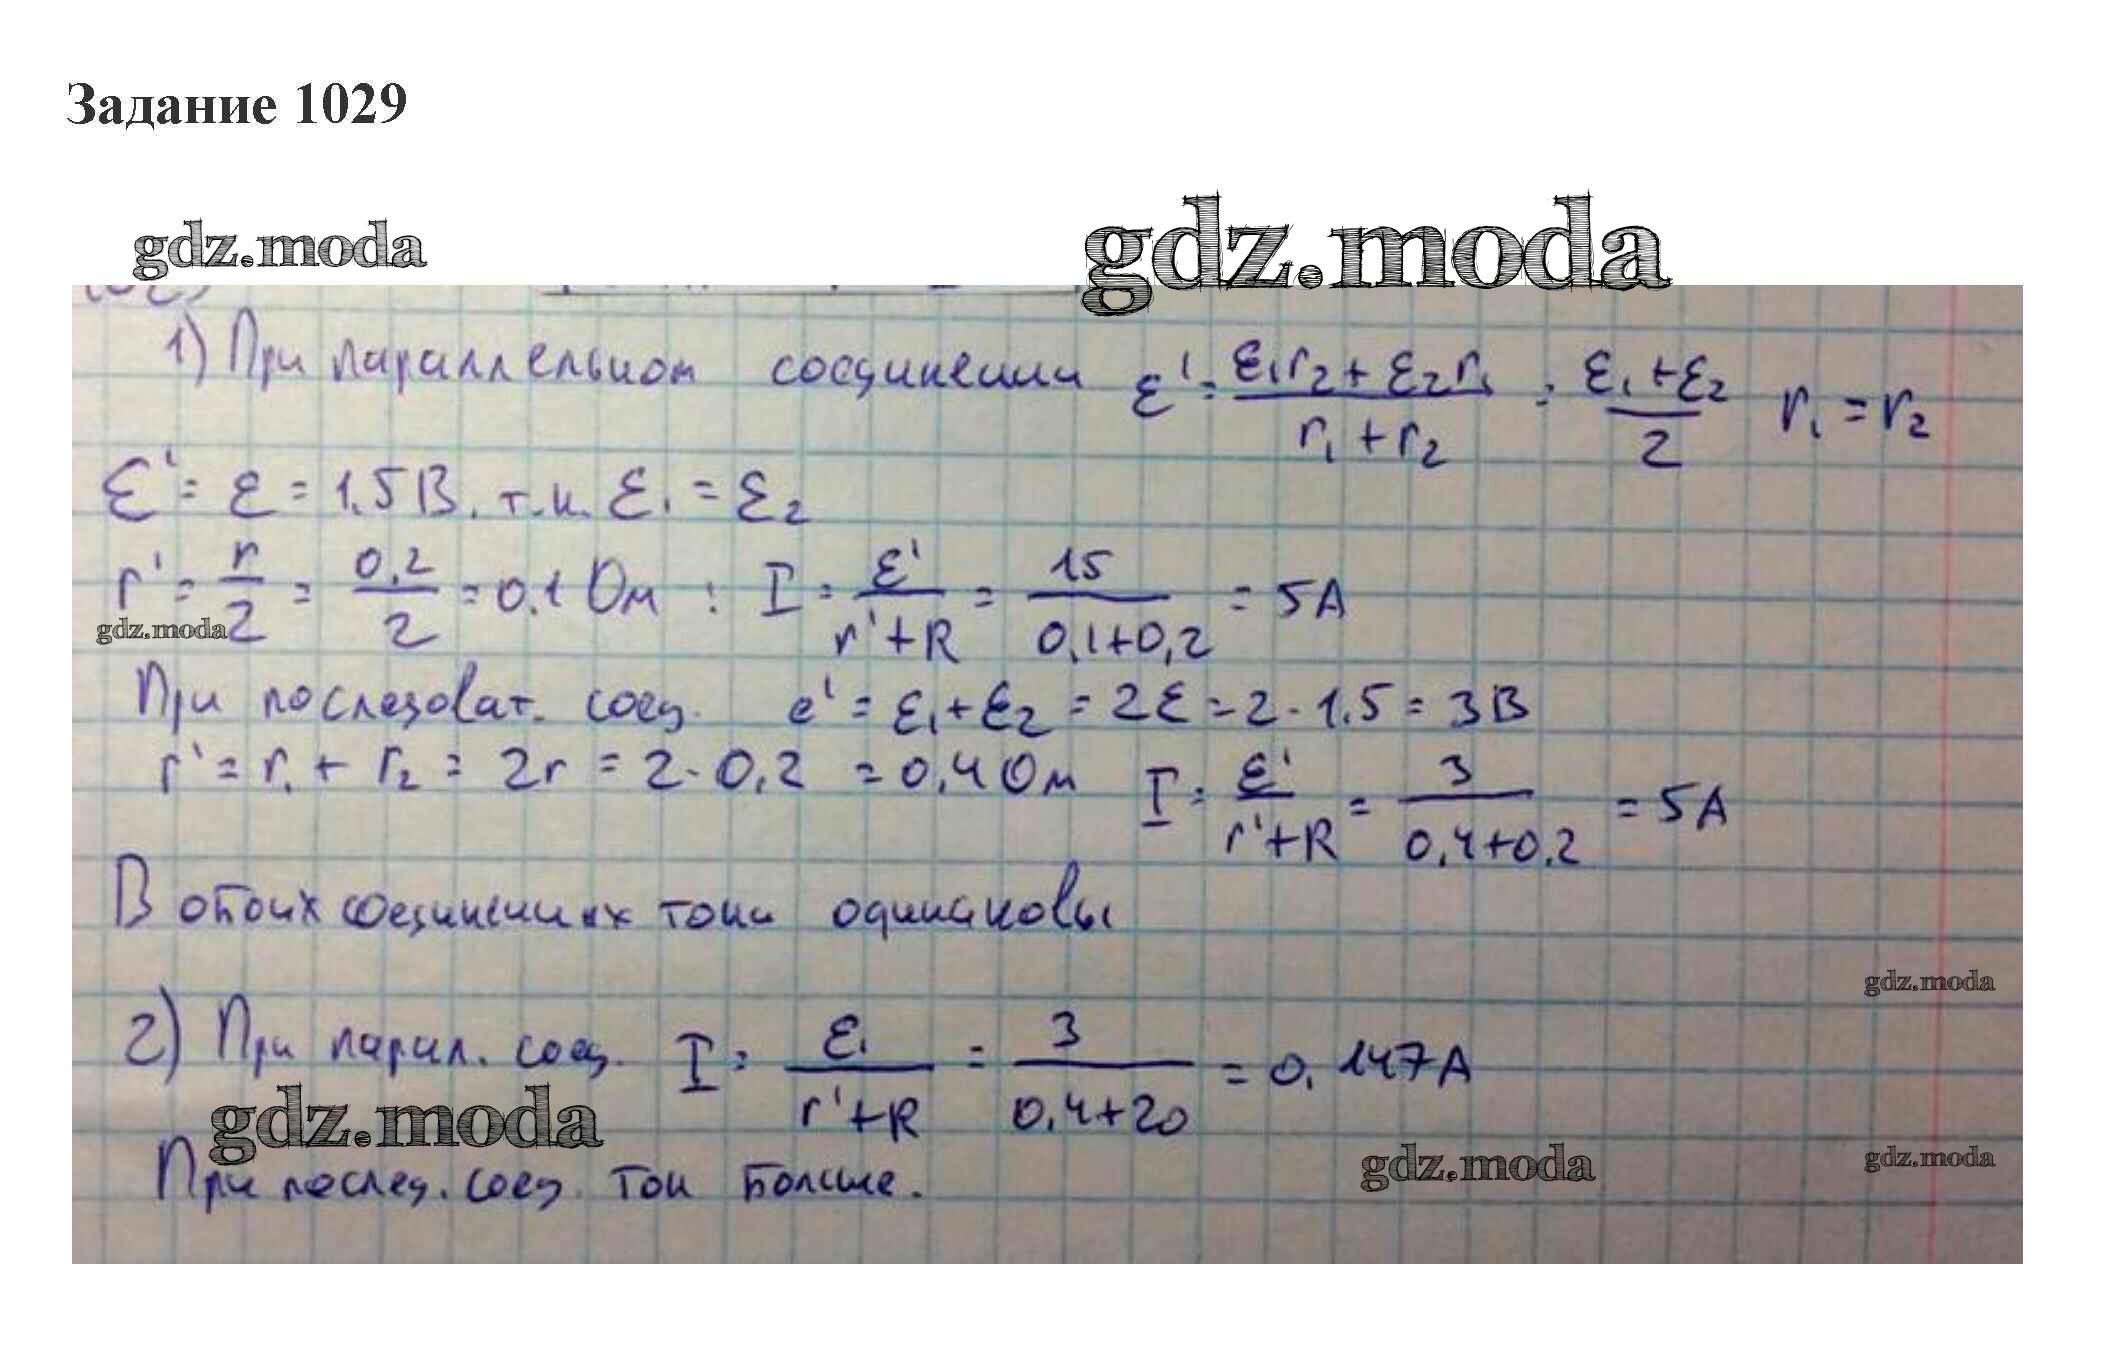 Задание 1029
gdz.moda
gdz.moda
1) При параллельном соединении ε' = (ε₁r₂ + ε₂r₁)/(r₁ + r₂) = (ε₁ + ε₂)/2 r₁ = r₂
ε' = ε = 1.5В. т.к. ε₁ = ε₂
r' = r/2 = 0,2/2 = 0.1 Ом : I = ε'/(r'+R) = 15/(0,1+0,2) = 5А
gdz.moda
При последоват. соед. e' = ε₁+ε₂ = 2ε = 2·1.5 = 3В
r' = r₁ + r₂ = 2r = 2·0,2 = 0,4 Ом I = ε'/(r'+R) = 3/(0,4+0.2) = 5А
В обоих соединениях токи одинаковы
gdz.moda
2) При парал. соед. I = ε₁/(r'+R) = 3/(0,4+20) = 0.147А
gdz.moda
gdz.moda
gdz.moda
При послед. соед. ток больше.